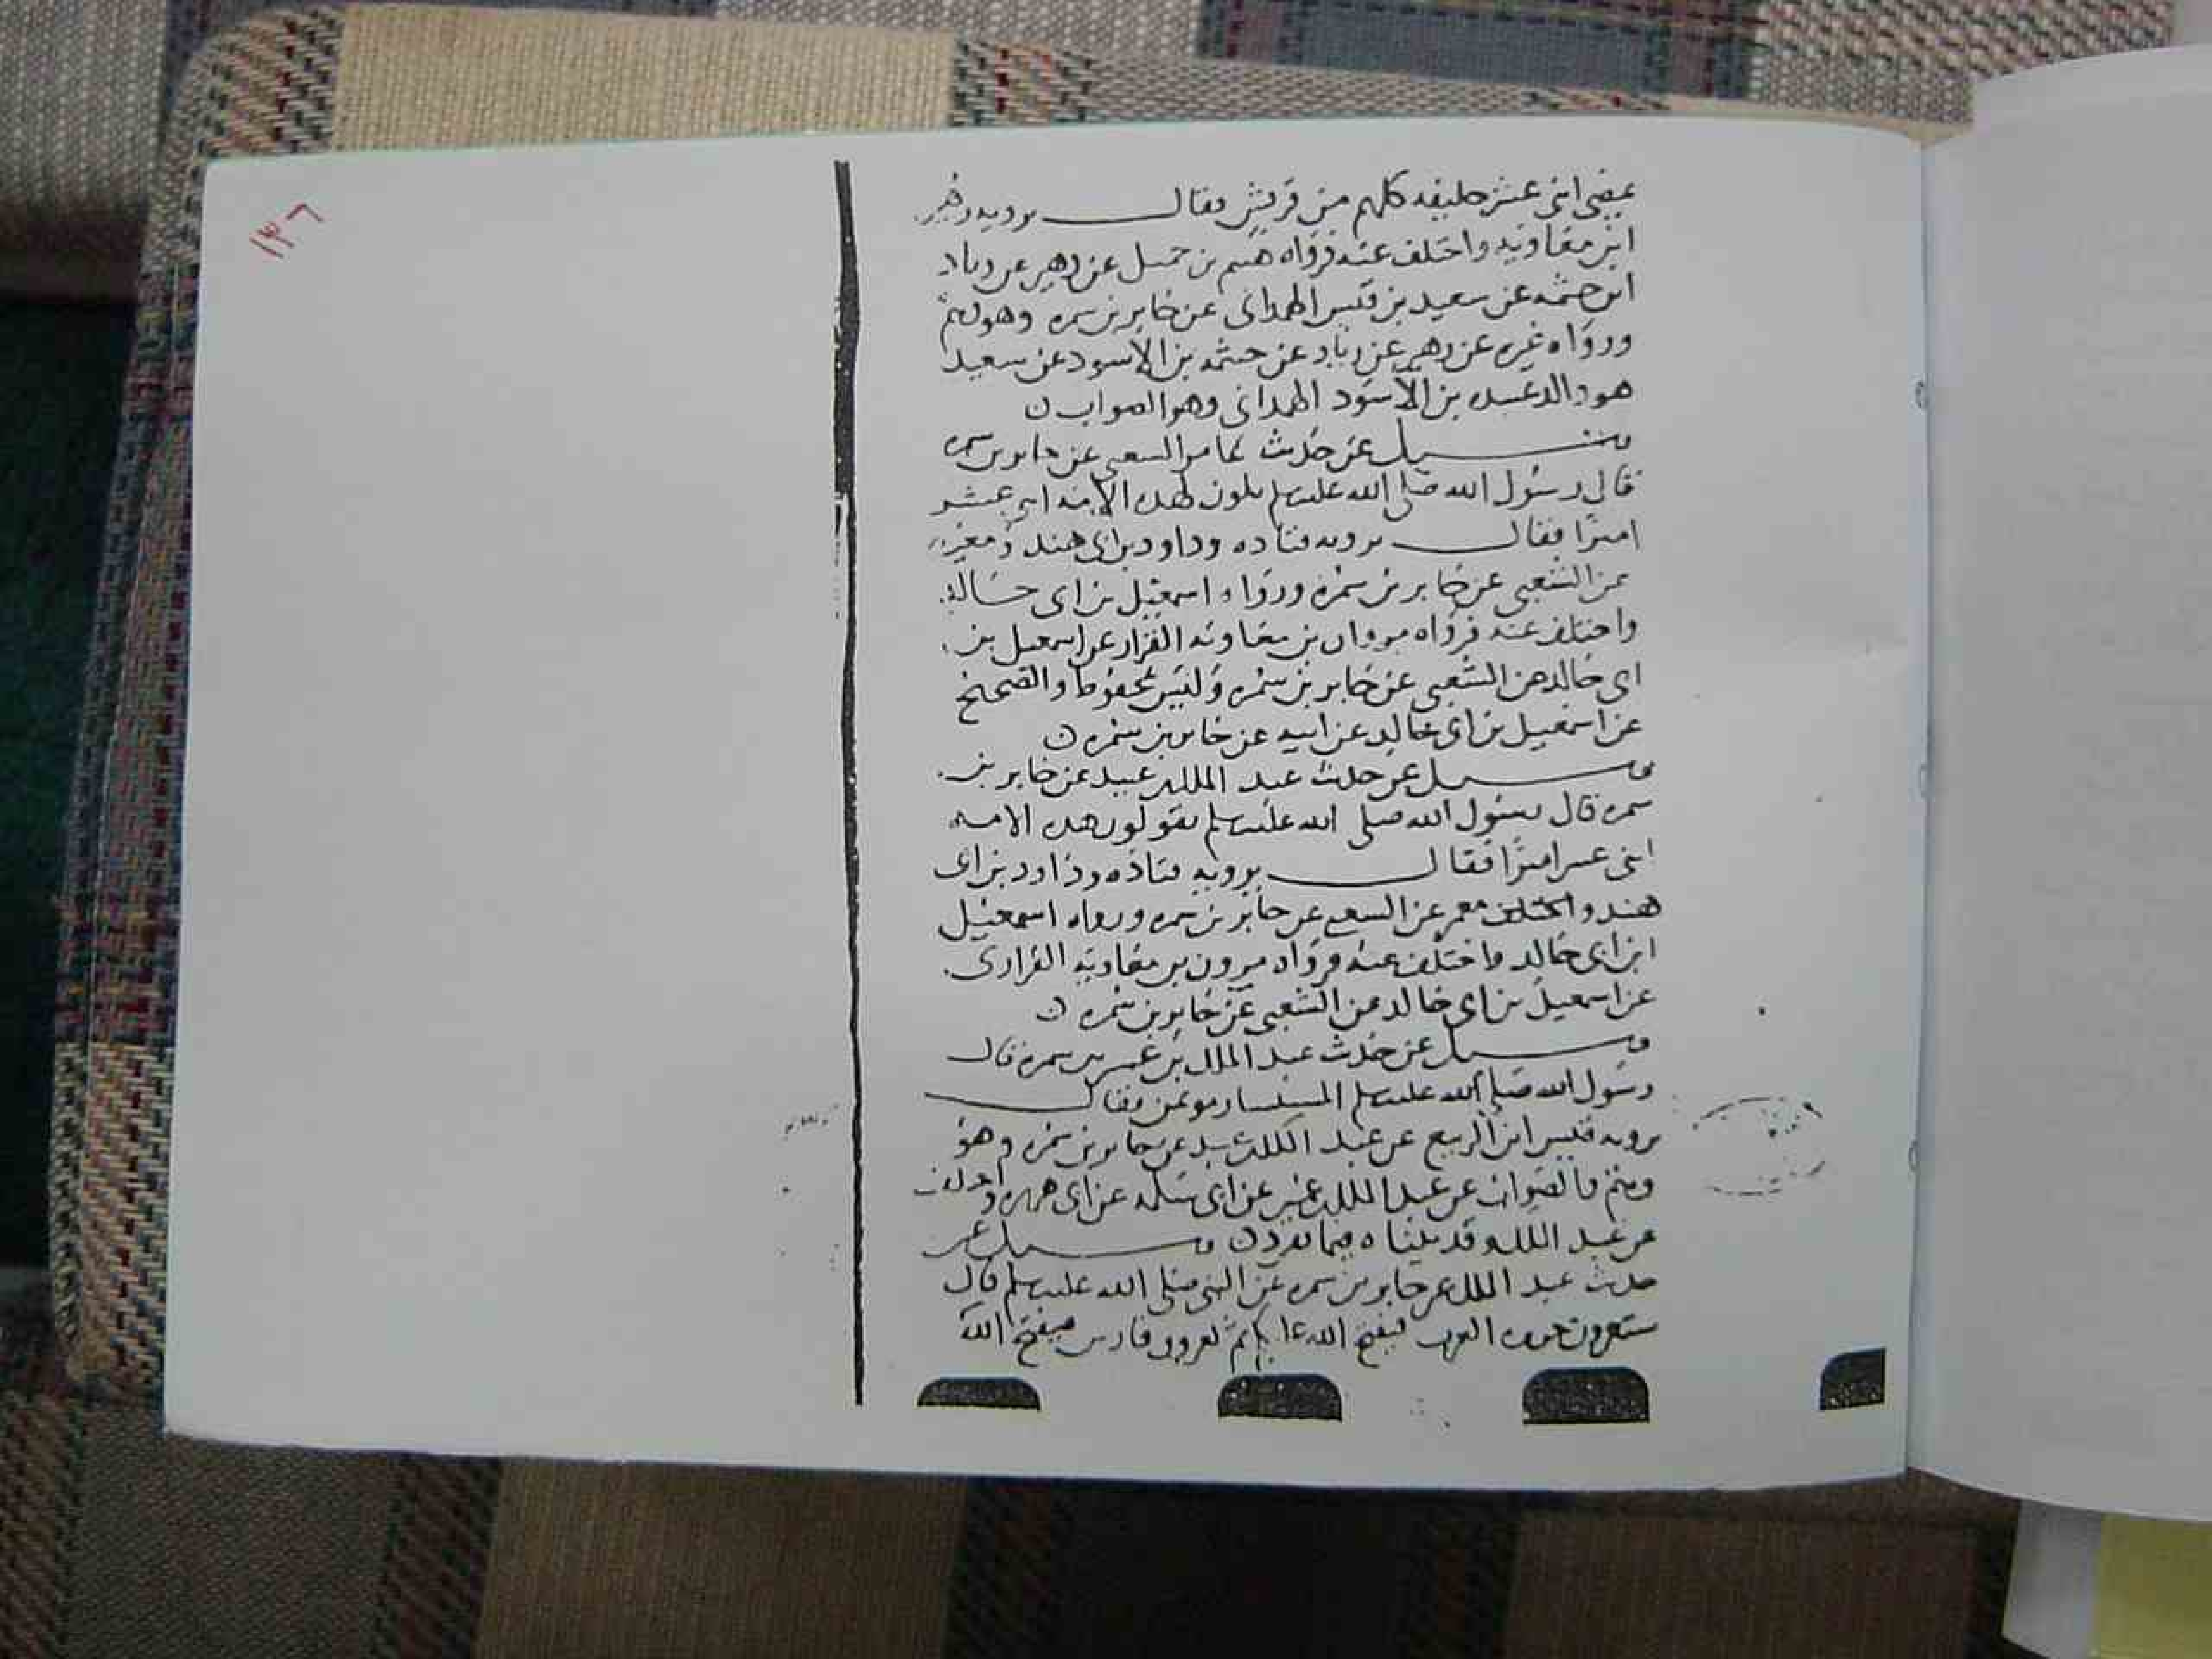 يمضي اثنى عشر خليفه كلهم من قريش فقال يرويه زهير
ابن معاويه واختلف عنه فرواه هيثم بن جميل عن زهير عن زياد
ابن خيثمه عن سعيد بن قيس الهمداني عن جابر بن سمره وهو وهم
ورواه غيره عن زهير عن زياد عن خيثمه بن الاسود عن سعيد
هو والد عبيده بن الاسود الهمداني وهو الصواب ن
وسئل عن حديث عامر الشعبي عن جابر بن سمره
قال رسول الله صلى الله عليه وسلم يكون لهذه الامه اثني عشر
اميرا فقال يرويه قتاده وداود بن ابي هند و مغيره
عن الشعبي عن جابر بن سمره ورواه اسمعيل بن ابي خالد
واختلف عنه فرواه مروان بن معاويه الفزاري عن اسمعيل بن
ابي خالد عن الشعبي عن جابر بن سمره وليس بمحفوظ والصحيح
عن اسمعيل بن ابي خالد عن ابيه عن جابر بن سمره ن
وسئل عن حديث عبد الملك عبيد عن جابر بن
سمره قال رسول الله صلى الله عليه وسلم هذه الامه
اثنى عشر اميرا فقال يرويه قتاده وداود بن ابي
هند واختلف معمر عن الشعبي عن جابر بن سمره ورواه اسمعيل
ابن ابي خالد واختلف عنه فرواه مرون بن معاويه الفزاري
عن اسمعيل بن ابي خالد عن الشعبي عن جابر بن سمره ن
وسئل عن حديث عبد الملك بن عمير بن سمره قال
رسول الله صلى الله عليه وسلم المستشار موتمن فقال
يرويه قيس ابن الربيع عن عبد الملك عن جابر بن سمره وهو
وهم والصواب عن عبد الملك عمير عن ابي سلمه عن ابي هريره
عن عبد الملك وقد بيناه فيما تقدم ن وسئل عن
حديث عبد الملك عن جابر بن سمره عن النبي صلى الله عليه وسلم قال
ستغزون جزيره العرب فيفتح الله ثم تغزون فارس فيفتح الله
١٣٦